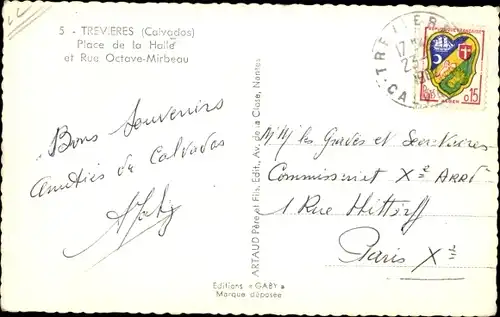 5 - TREVIERES (Calvados)
Place de la Halle
et Rue Octave-Mirbeau
Bons souvenirs
amitiés du Calvados
ARTAUD Père et Fils, Edit., Av. de la Close, Nantes
Editions « GABY »
Marque déposée
TREVIERES
17
CAL
REPUBLIQUE FRANÇAISE
0,15
ALGER
les Gardes et
Commissariat Xe Arrdt
1 Rue Hittorff
Paris Xe